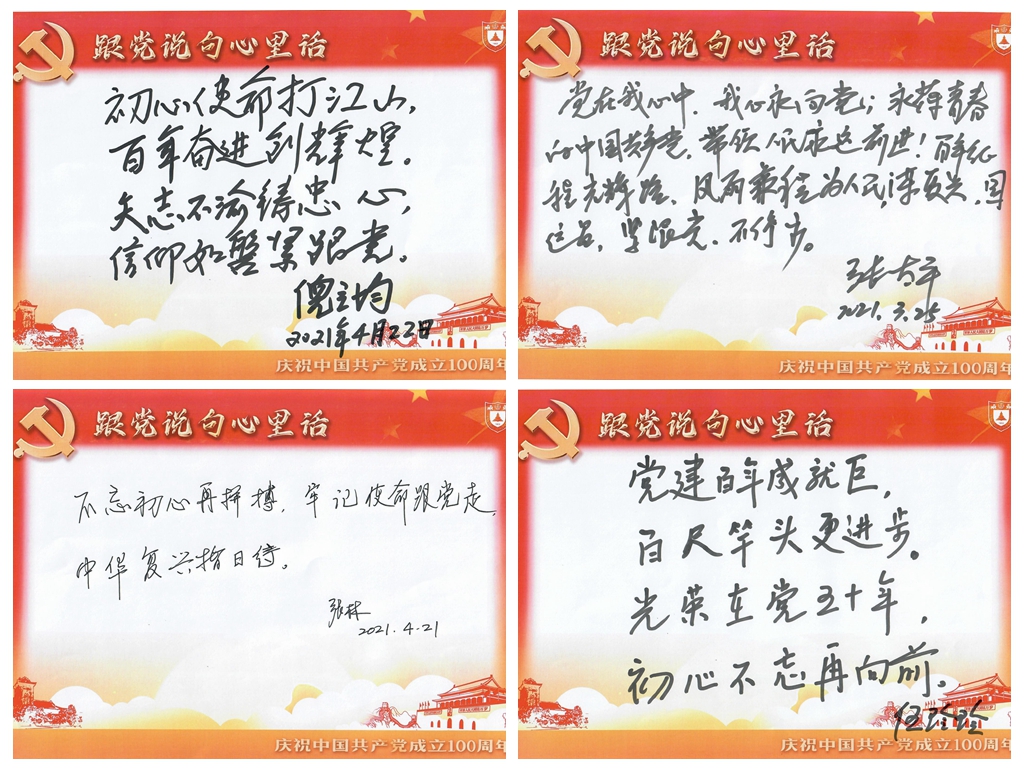 跟党说句心里话
初心使命打江山，
百年奋进到辉煌。
矢志不渝铸忠心，
信仰如磐紧跟党。
倪立均
2021年4月22日
庆祝中国共产党成立100周年
跟党说句心里话
党在我心中，我心永向党；永葆青春
的中国共产党，带领人民永远前进！百年征
程光辉路，风雨兼程为人民，谋复兴，
坚跟党，不停步。
2021.3.25
庆祝中国共产党成立100周年
跟党说句心里话
不忘初心再拼搏，牢记使命跟党走，
中华复兴指日待。
张林
2021.4.21
庆祝中国共产党成立100周年
跟党说句心里话
党建百年成就巨，
百尺竿头更进步。
光荣在党五十年，
初心不忘再向前。
伍玲玲
庆祝中国共产党成立100周年